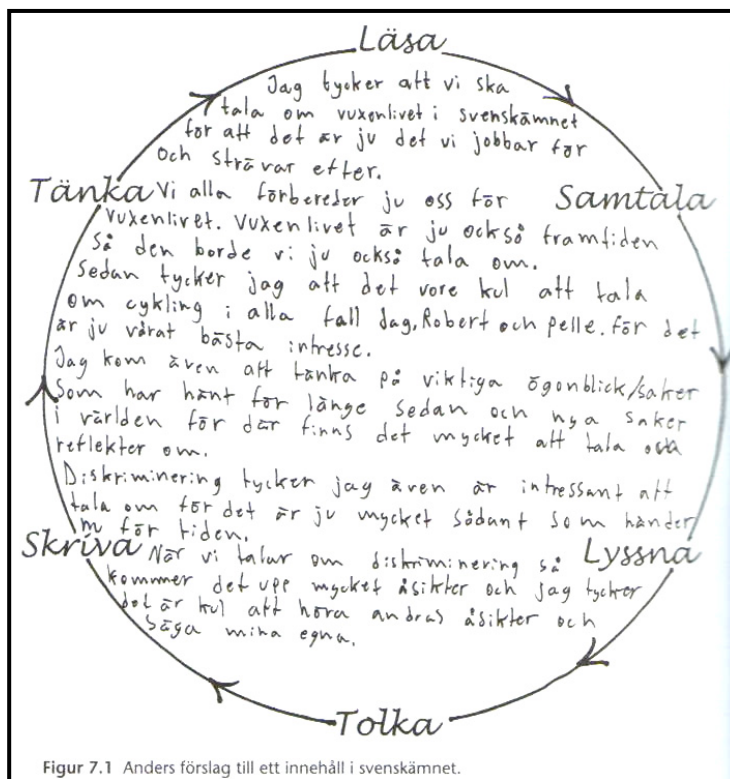 Läsa
Jag tycker att vi ska
tala om vuxenlivet i svenskämnet
för att det är ju det vi jobbar för
och strävar efter.
Tänka
Samtala
Vi alla förbereder ju oss för
vuxenlivet. Vuxenlivet är ju också framtiden
så den borde vi ju också tala om.
Sedan tycker jag att det vore kul att tala
om cykling i alla fall Jag, Robert och pelle. för det
är ju vårat bästa intresse.
Jag kom även att tänka på viktiga ögonblick/saker
Som har hänt för länge sedan och nya saker
i världen för där finns det mycket att tala och
reflekter om.
Diskriminering tycker jag även är intressant att
tala om för det är ju mycket sådant som händer
för tiden.
Skriva
Lyssna
När vi talar om diskriminering så
kommer det upp mycket åsikter och jag tycker
det är kul att höra andras åsikter och
säga mina egna.
Tolka
Figur 7.1 Anders förslag till ett innehåll i svenskämnet.